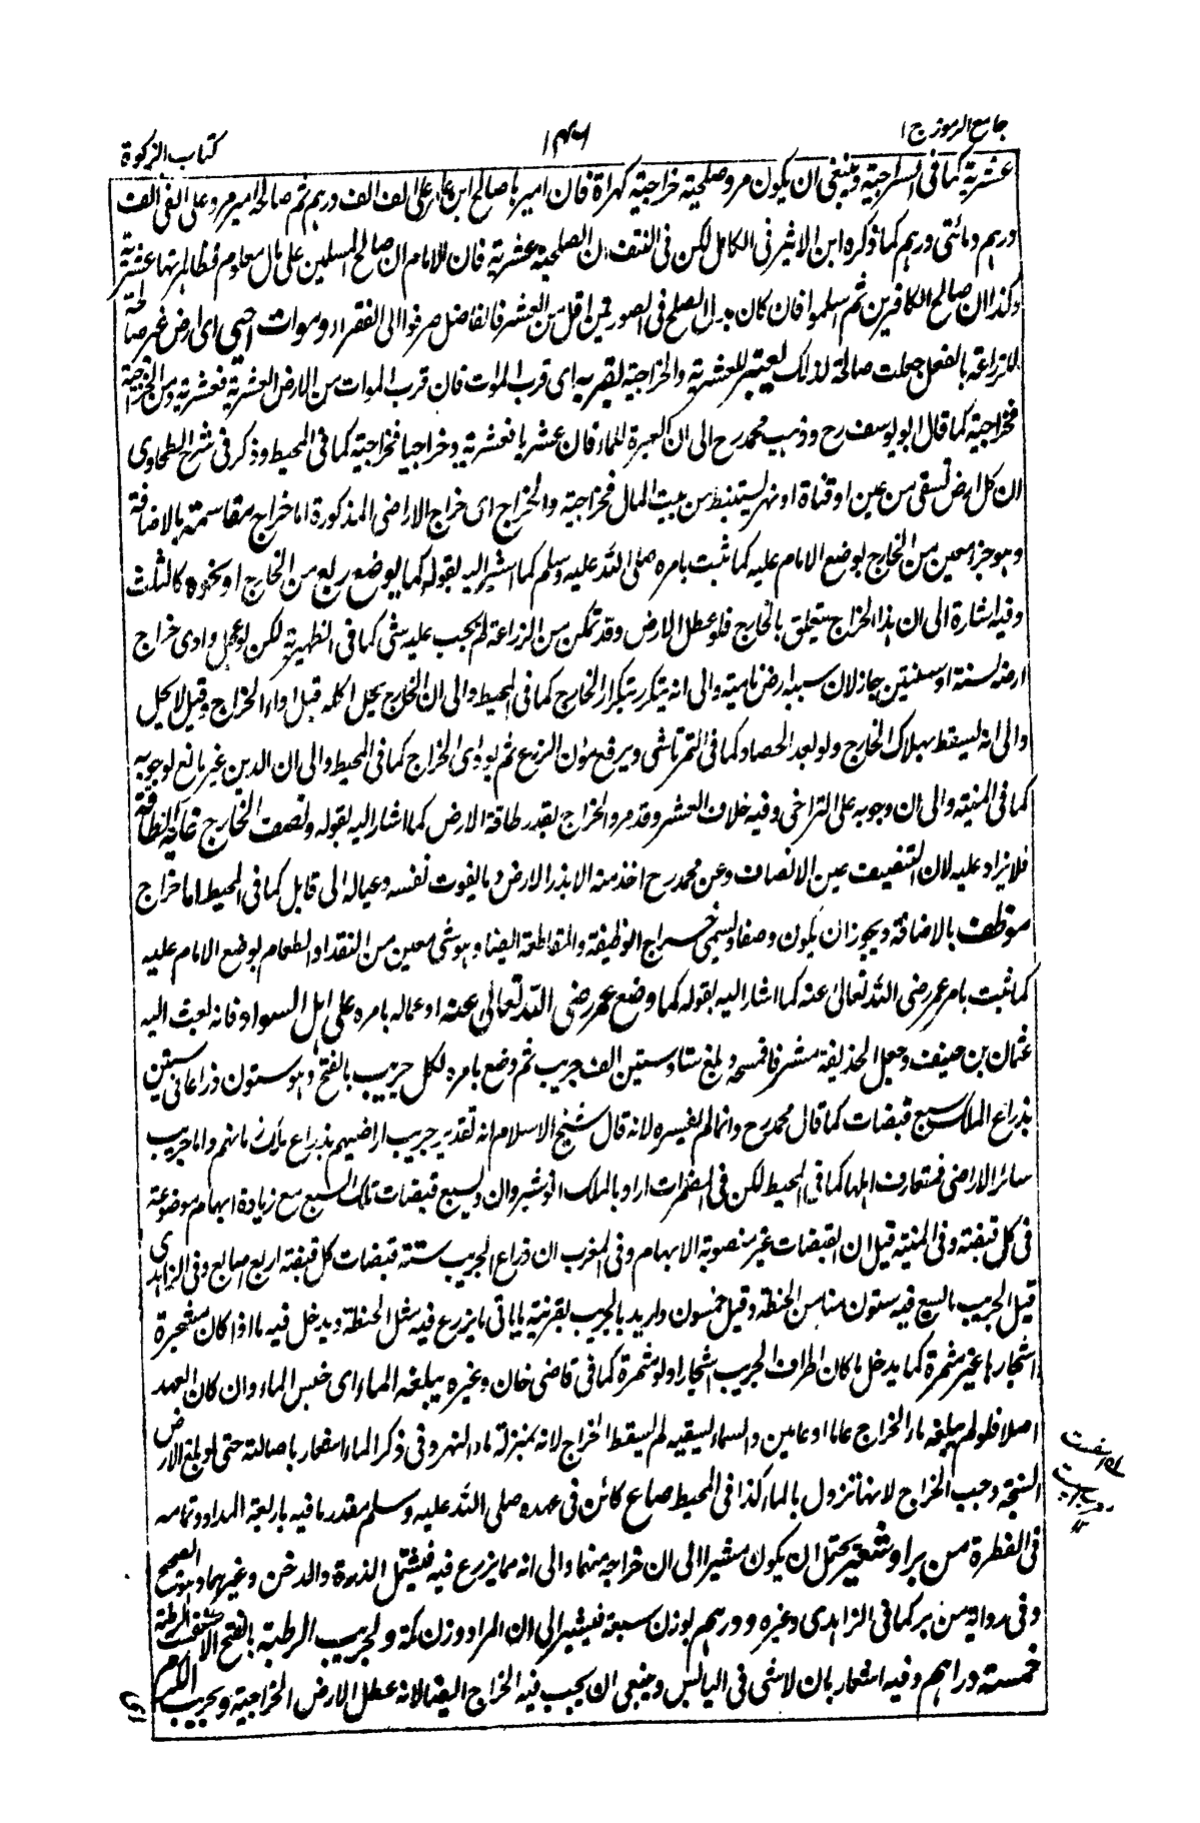 جامع الرموز ج ١
١٤٦
كتاب الزكوة
عشرية كما فى السراجية وينبغى ان يكون مرو صلحية خراجية كهراة فان اميرها صالح ابن عامر على الف الف درهم ثم صالحه امير مرو على الفى الف
درهم ومائتى درهم كما ذكره ابن الاثير فى الكامل لكن فى النتف ان الصلحية عشرية فان الامام ان صالح المسلمين على مال معلوم فظاهر انها عشرية
وكذا ان صالح الكافرين ثم اسلموا فان كان بدل الصلح فى الصورتين اقل من العشر فالفاضل صرفوا الى الفقراء وموات احيى اى ارض غير صالحة
للزراعة بالفعل جعلت صالحة لذلك يعتبر للعشرية والخراجية بقربه اى قرب الموات فان قرب الموات من الارض العشرية فعشرية ومن الخراجية
فخراجية كما قال ابو يوسف رح وذهب محمد رح الى ان العبرة للماء فان عشريا فعشرية وخراجيا فخراجية كما فى المحيط وذكر فى شرح الطحاوى
ان كل ارض تسقى من عين او قناة او نهر يستنبط من بيت المال فخراجية والخراج اى خراج الاراضى المذكورة اما خراج مقاسمة بالاضافة
وهو جزء معين من الخارج يوضع الامام عليه كما ثبت بامره صلى الله عليه وسلم كما اشير اليه بقوله كما يوضع ربع من الخارج او نحوه كالثلث
وفيه اشارة الى ان هذا الخراج يتعلق بالخارج فلو عطل الارض وقد تمكن من الزراعة لم يجب عليه شى كما فى الظهيرية لكن لو عجل وادى خراج
ارضه لسنة او سنتين جاز لان سببه ارض نامية والى انه يتكرر بتكرار الخارج كما فى المحيط والى ان الخارج يحل اكله قبل اداء الخراج وقيل لا يحل
والى انه يسقط بهلاك الخارج ولو بعد الحصاد كما فى التمرتاشى ويرفع مؤن الزرع ثم يؤدى الخراج كما فى المحيط والى ان الدين غير مانع لوجوبه
كما فى المنية والى ان وجوبه على التراخى وفيه خلاف العشر وقد مر والخراج بقدر طاقة الارض كما اشار اليه بقوله ونصف الخارج غاية الطاقة
فلا يزاد عليه لان التنصيف عين الانصاف وعن محمد رح اخذ منه الا بذر الارض وما يقوت نفسه وعياله الى قابل كما فى المحيط اما خراج
موظف بالاضافة ويجوز ان يكون وصفا ويسمى خراج الوظيفة والمقاطعة ايضا وهو شى معين من النقد او الطعام يوضع الامام عليه
كما ثبت بامر عمر رضى الله تعالى عنه كما اشار اليه بقوله كما وضع عمر رضى الله تعالى عنه او عماله بامره على اهل السواد فانه بعث اليه
عثمان بن حنيف وجعل الحذيفة مشرفا فمسحه وبلغ ستا وستين الف جريب ثم وضع بامره لكل جريب بالفتح وهو ستون ذراعا فى ستين
بذراع الملك سبع قبضات كما قال محمد رح وانما لم يفسره لانه قال شيخ الاسلام انه تقدير جريب اراضيهم بذراع ملك زمانهم واما جريب
سائر الاراضى فمتعارف اهلها كما فى المحيط لكن فى المضمرات اراد بالملك انوشيروان وسبع قبضات تلك السبع مع زيادة ابهام موضوعة
فى كل قبضة وفى المنية قيل ان القبضات غير منصوبة الابهام وفى المغرب ان ذراع الجريب ستة قبضات كل قبضة اربع اصابع وفى الزاهدى
قيل الجريب ما يسع فيه ستون منا من الحنطة وقيل خمسون واريد بالجريب بقرينة ما ياتى ما يزرع فيه مثل الحنطة ويدخل فيه ما اذا كان مشجرة
اشجارها غير مثمرة كما يدخل ما كان اطراف الجريب اشجارا ولو مثمرة كما فى قاضى خان وغيره يبلغه الماء اى خبس الماء وان كان العهد
اصلا فلو لم يبلغه ماء الخراج عاما او عامين والسماء يسقيه لم يسقط الخراج لانه بمنزلة ماء النهر وفى ذكر الماء اشعار باصالته حتى لو بلغ الارض
السبخة وجب الخراج لانها تزول بالماء كذا فى المحيط صاع كائن فى عهده صلى الله عليه وسلم مقدر ما فيه باربعة امداد وتمامه
فى الفطرة من بر او شعير يحتمل ان يكون مشيرا الى ان خراجه منهما والى انه مما يزرع فيه فيشمل الذرة والدخن وغيرهما وهو الصحيح
وفى رواية من بر كما فى الزاهدى وغيره ودرهم بوزن سبعة فيشير الى ان المراد وزن مكة ولجريب الرطبة بالفتح الاسفست الرطبة
خمسة دراهم وفيه اشعار بان لا شى فى اليابس وينبغى ان يجب فيه الخراج ايضا لانه عطل الارض الخراجية ولجريب الكرم